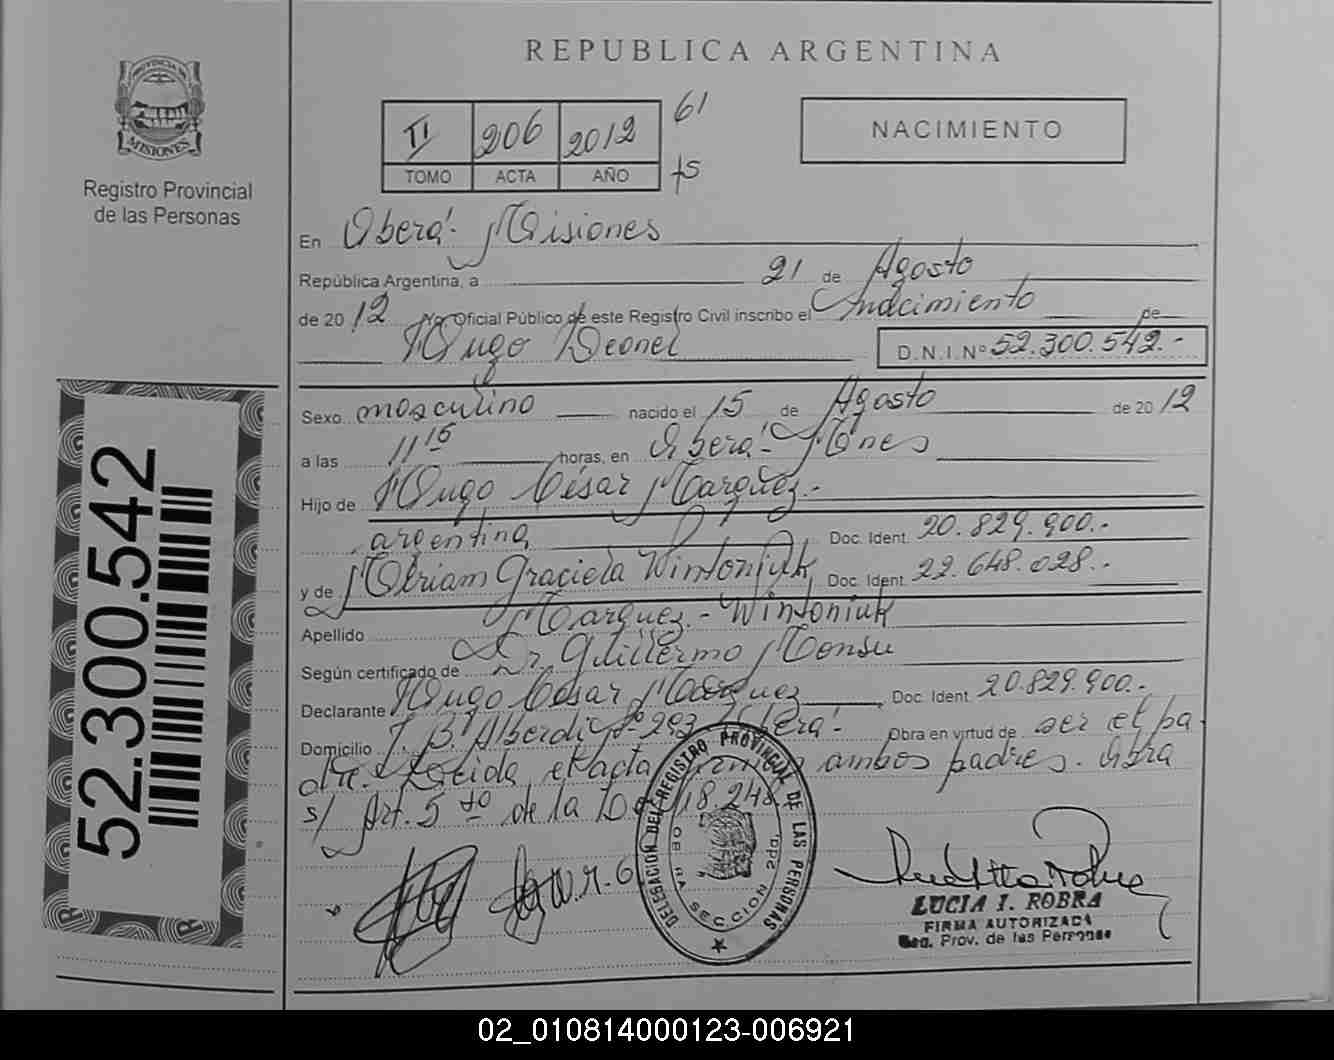 REPUBLICA ARGENTINA
PROVINCIA DE
MISIONES
Registro Provincial
de las Personas
II 206 2012 61
TOMO ACTA AÑO
NACIMIENTO
En Oberá - Misiones
República Argentina, a 21 de Agosto
de 2012 Yo Oficial Público de este Registro Civil inscribo el nacimiento de
Hugo Leonel D.N.I.Nº 52.300.542.-
Sexo masculino nacido el 15 de Agosto de 2012
a las 11 15 horas, en Oberá - Mnes
Hijo de Hugo César Marquez.-
argentina Doc. Ident. 20.829.900.-
y de Miriam Graciela Wintoniuk Doc. Ident. 22.648.028.-
Apellido Marquez - Wintoniuk
Según certificado de Dr. Guillermo Monsu
Declarante Hugo César Marquez Doc. Ident. 20.829.900.-
Domicilio J. B. Alberdi Nº 293 Oberá.- Obra en virtud de ser el pa
dre. Leida el acta firman ambos padres. Obra
s/ Art. 5 to de la Ley 18.248.
52.300.542
DELEGACION DEL REGISTRO PROVINCIAL DE LAS PERSONAS
OBERA SECCION 2da.
LUCIA I. ROBRA
FIRMA AUTORIZADA
Reg. Prov. de las Personas
02_010814000123-006921